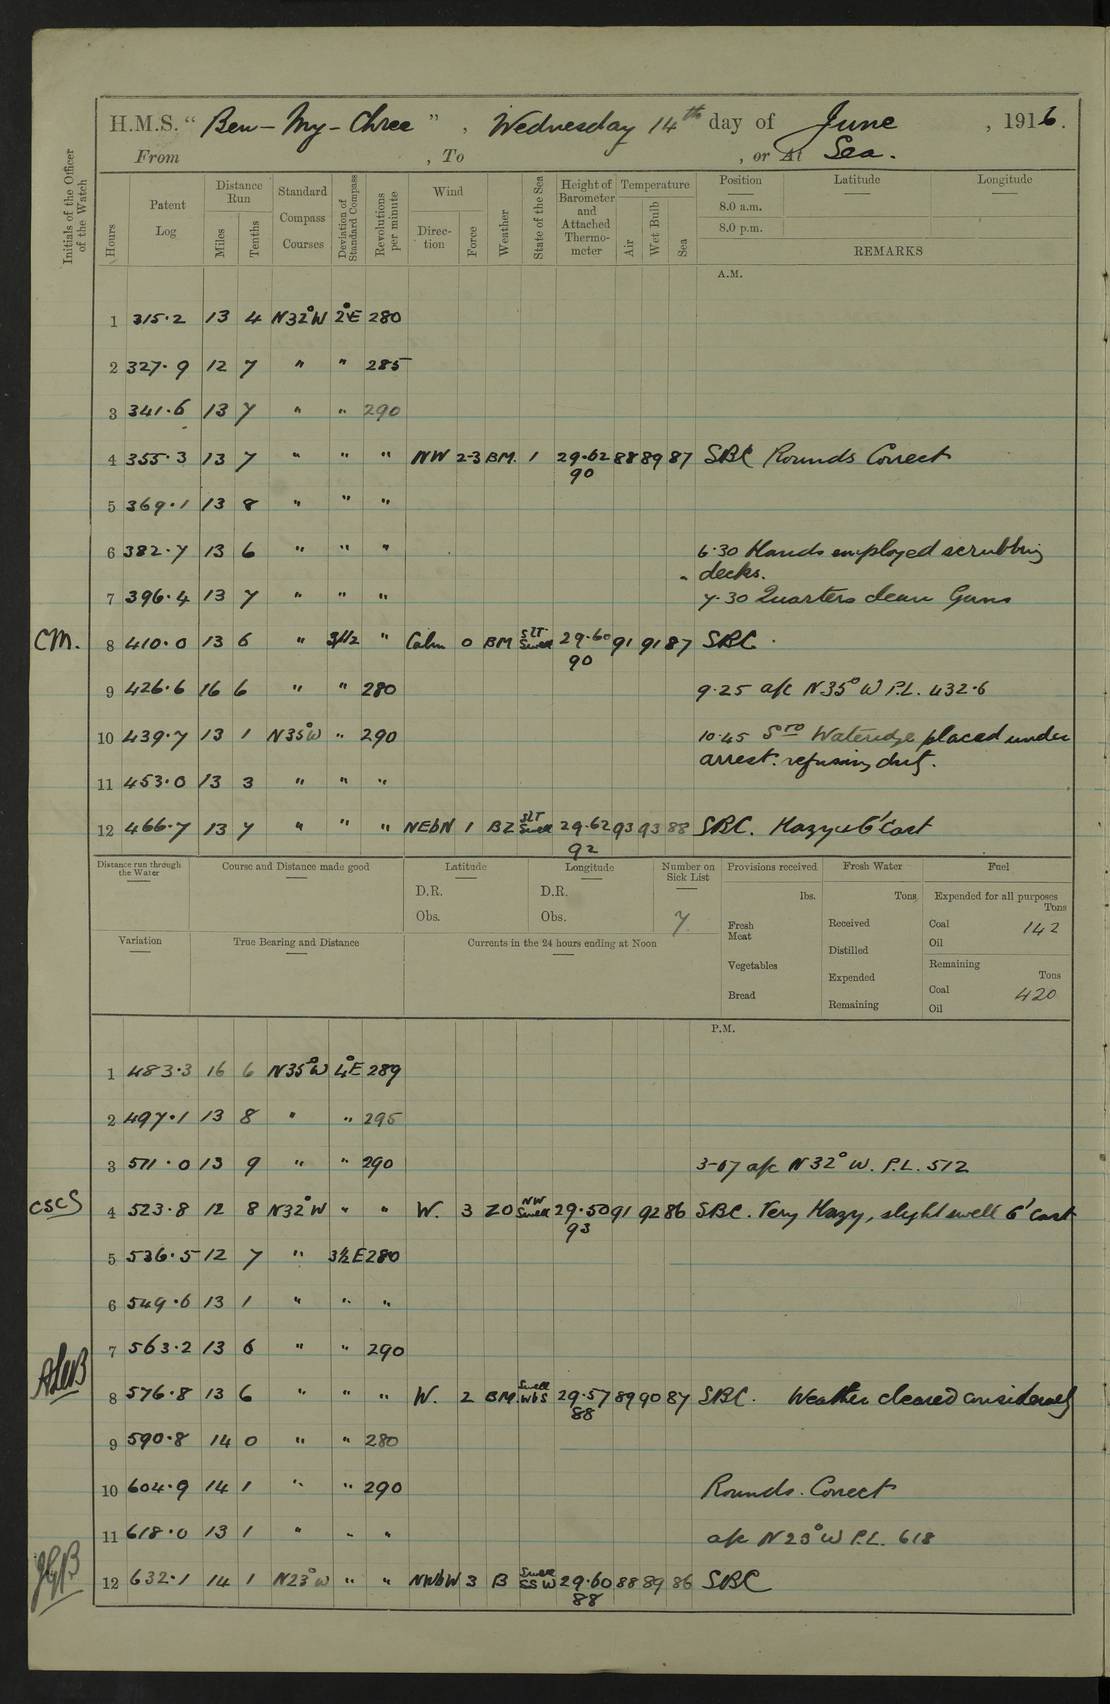 H.M.S. " Ben-My-Chree ", Wednesday 14th day of June, 1916.
From , To , or At Sea.
Initials of the Officer of the Watch
Hours
Patent Log
Distance Run
Miles
Tenths
Standard Compass Courses
Deviation of Standard Compass
Revolutions per minute
Wind
Direction
Force
Weather
State of the Sea
Height of Barometer and Attached Thermometer
Temperature
Air
Wet Bulb
Sea
Position Latitude Longitude
8.0 a.m.
8.0 p.m.
REMARKS
A.M.
1 315.2 13 4 N32°W 2°E 280
2 327.9 12 7 " " 285
3 341.6 13 7 " " 290
4 355.3 13 7 " " " NW 2-3 BM. 1 29.62 88 89 87 SBC Rounds Correct
90
5 369.1 13 8 " " "
6 382.7 13 6 " " " 6.30 Hands employed scrubbing
decks.
7 396.4 13 7 " " " 7.30 Quarters clean Guns
CM. 8 410.0 13 6 " 3 1/2 " Calm 0 BM SLT Swell 29.60 91 91 87 SBC.
90
9 426.6 16 6 " " 280 9.25 a/c N35°W P.L. 432.6
10 439.7 13 1 N35°W " 290 10.45 Sto Wateridge placed under
arrest. refusing duty.
11 453.0 13 3 " " "
12 466.7 13 7 " " " NEbN 1 BZ SLT Swell 29.62 93 93 88 SBC. Hazy
92
Distance run through the Water
Course and Distance made good
Latitude
D.R.
Obs.
Longitude
D.R.
Obs.
Number on Sick List
7
Provisions received
lbs.
Fresh Meat
Vegetables
Bread
Fresh Water
Tons
Received
Distilled
Expended
Remaining
Fuel
Expended for all purposes
Tons
Coal 142
Oil
Remaining
Tons
Coal 420
Oil
Variation
True Bearing and Distance
Currents in the 24 hours ending at Noon
P.M.
1 483.3 16 6 N35°W 4°E 289
2 497.1 13 8 " " 295
3 511.0 13 9 " " 290 3-07 a/c N32°W. P.L. 512
CSCS 4 523.8 12 8 N32°W " " W. 3 ZO NW Swell 29.50 91 92 86 SBC. Very Hazy, slight swell
93
5 536.5 12 7 " 3½E 280
6 549.6 13 1 " " "
7 563.2 13 6 " " 290
8 576.8 13 6 " " " W. 2 BM. Swell WbS 29.57 89 90 87 SBC. Weather cleared considerably
88
9 590.8 14 0 " " 280
10 604.9 14 1 " " 290 Rounds. Correct
11 618.0 13 1 " " " a/c N23°W P.L. 618
12 632.1 14 1 N23°W " " NWbW 3 B Swell SSW 29.60 88 89 86 SBC
88